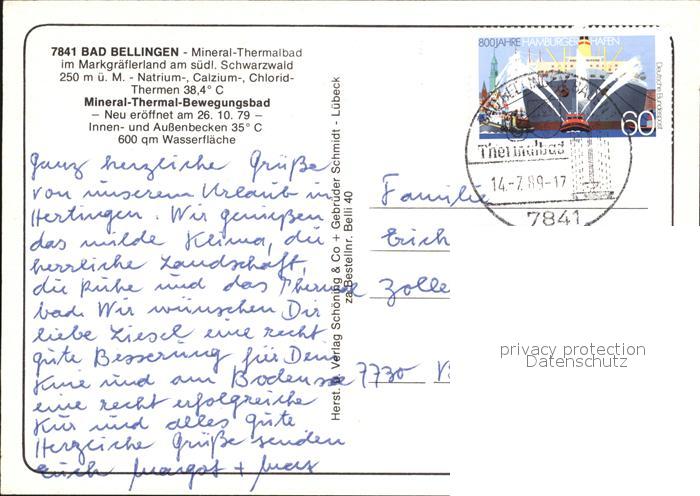 7841 BAD BELLINGEN - Mineral-Thermalbad
im Markgräflerland am südl. Schwarzwald
250 m ü. M. - Natrium-, Calzium-, Chlorid-
Thermen 38,4° C
Mineral-Thermal-Bewegungsbad
– Neu eröffnet am 26. 10. 79 –
Innen- und Außenbecken 35° C
600 qm Wasserfläche
Ganz herzliche Grüße
von unserem Urlaub in
Hertingen. Wir genießen
das milde Klima, die
herrliche Landschaft,
die Ruhe und das Thermal
bad. Wir wünschen Dir
liebe Liesel eine recht
gute Besserung für Dein
Knie und am Bodensee
eine recht erfolgreiche
Kur und alles Gute
Herzliche Grüße senden
Euch Margot + Max
Herst. u. Verlag Schöning & Co + Gebrüder Schmidt - Lübeck
zu Bestellnr. Belli 40
800 JAHRE HAMBURGER HAFEN
Deutsche Bundespost
60
Thermalbad
14.-7.89-17
7841
Familie
Erich
Zolle
7730
privacy protection
Datenschutz